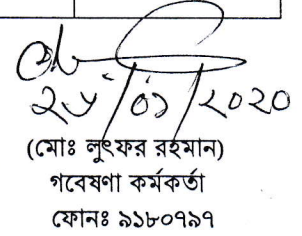 ২৮/০১/২০২০
(মোঃ লুৎফর রহমান)
গবেষণা কর্মকর্তা
ফোনঃ ৯১৮০৭৯৭